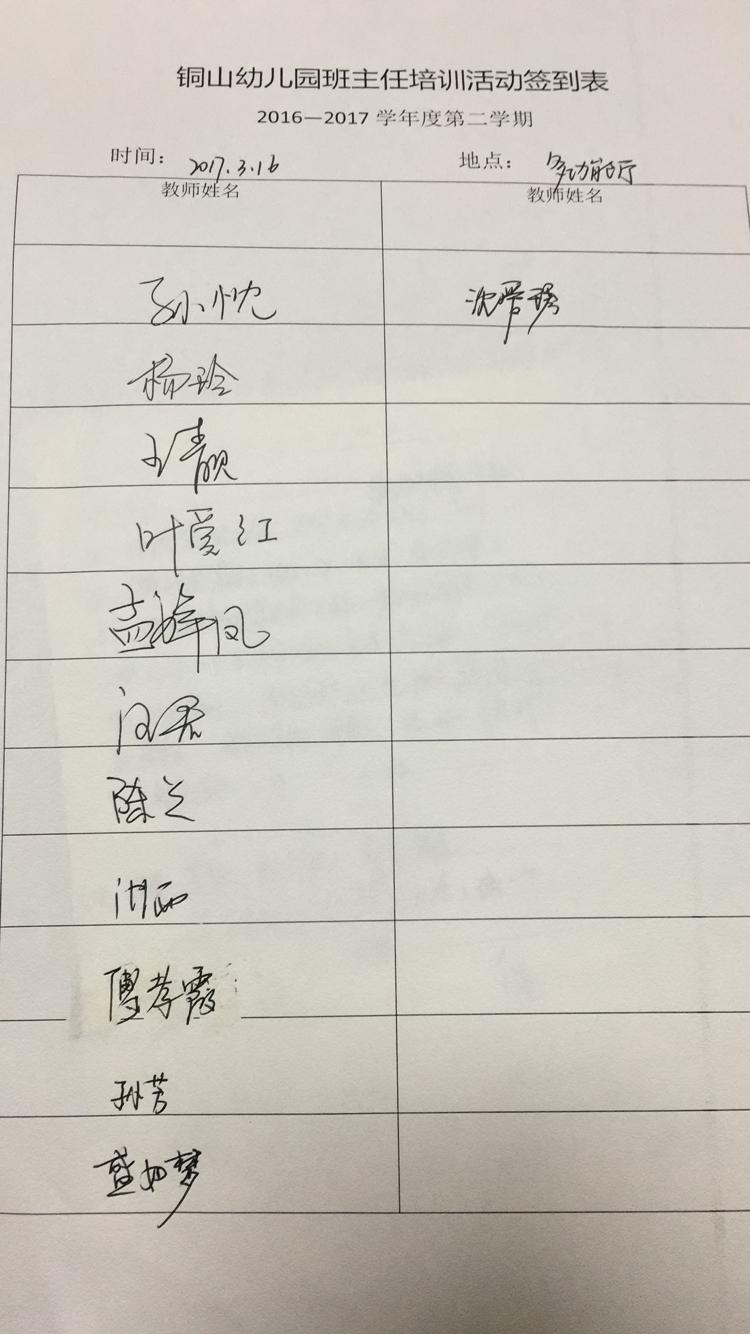 铜山幼儿园班主任培训活动签到表
2016—2017 学年度第二学期
时间： 2017.3.16 地点： 多功能厅
教师姓名 教师姓名
孙小忱 沈
杨玲
王靓
叶爱红
孟海凤
汪君
陈兰
傅孝霞
孙芳
盛如梦